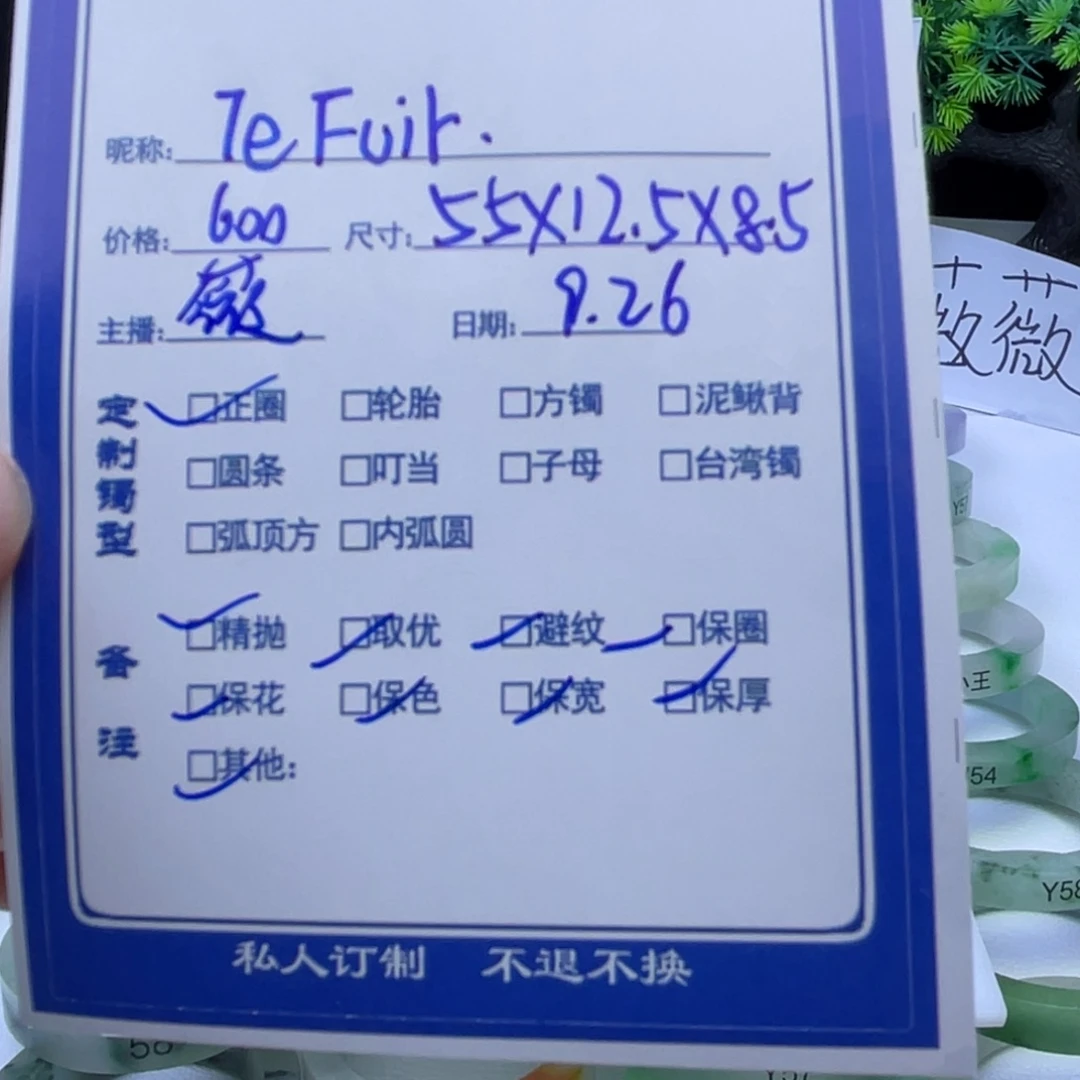 昵称: Te Fuir.
价格: 600 尺寸: 55X12.5X8.5
主播: 薇 日期: 9.26
定制镯型
□正圈 □轮胎 □方镯 □泥鳅背
□圆条 □叮当 □子母 □台湾镯
□弧顶方 □内弧圆
备注
□精抛 □取优 □避纹 □保圈
□保花 □保色 □保宽 □保厚
□其他:
私人订制 不退不换
薇
Y57
小王
Y54
Y58
58
Y57